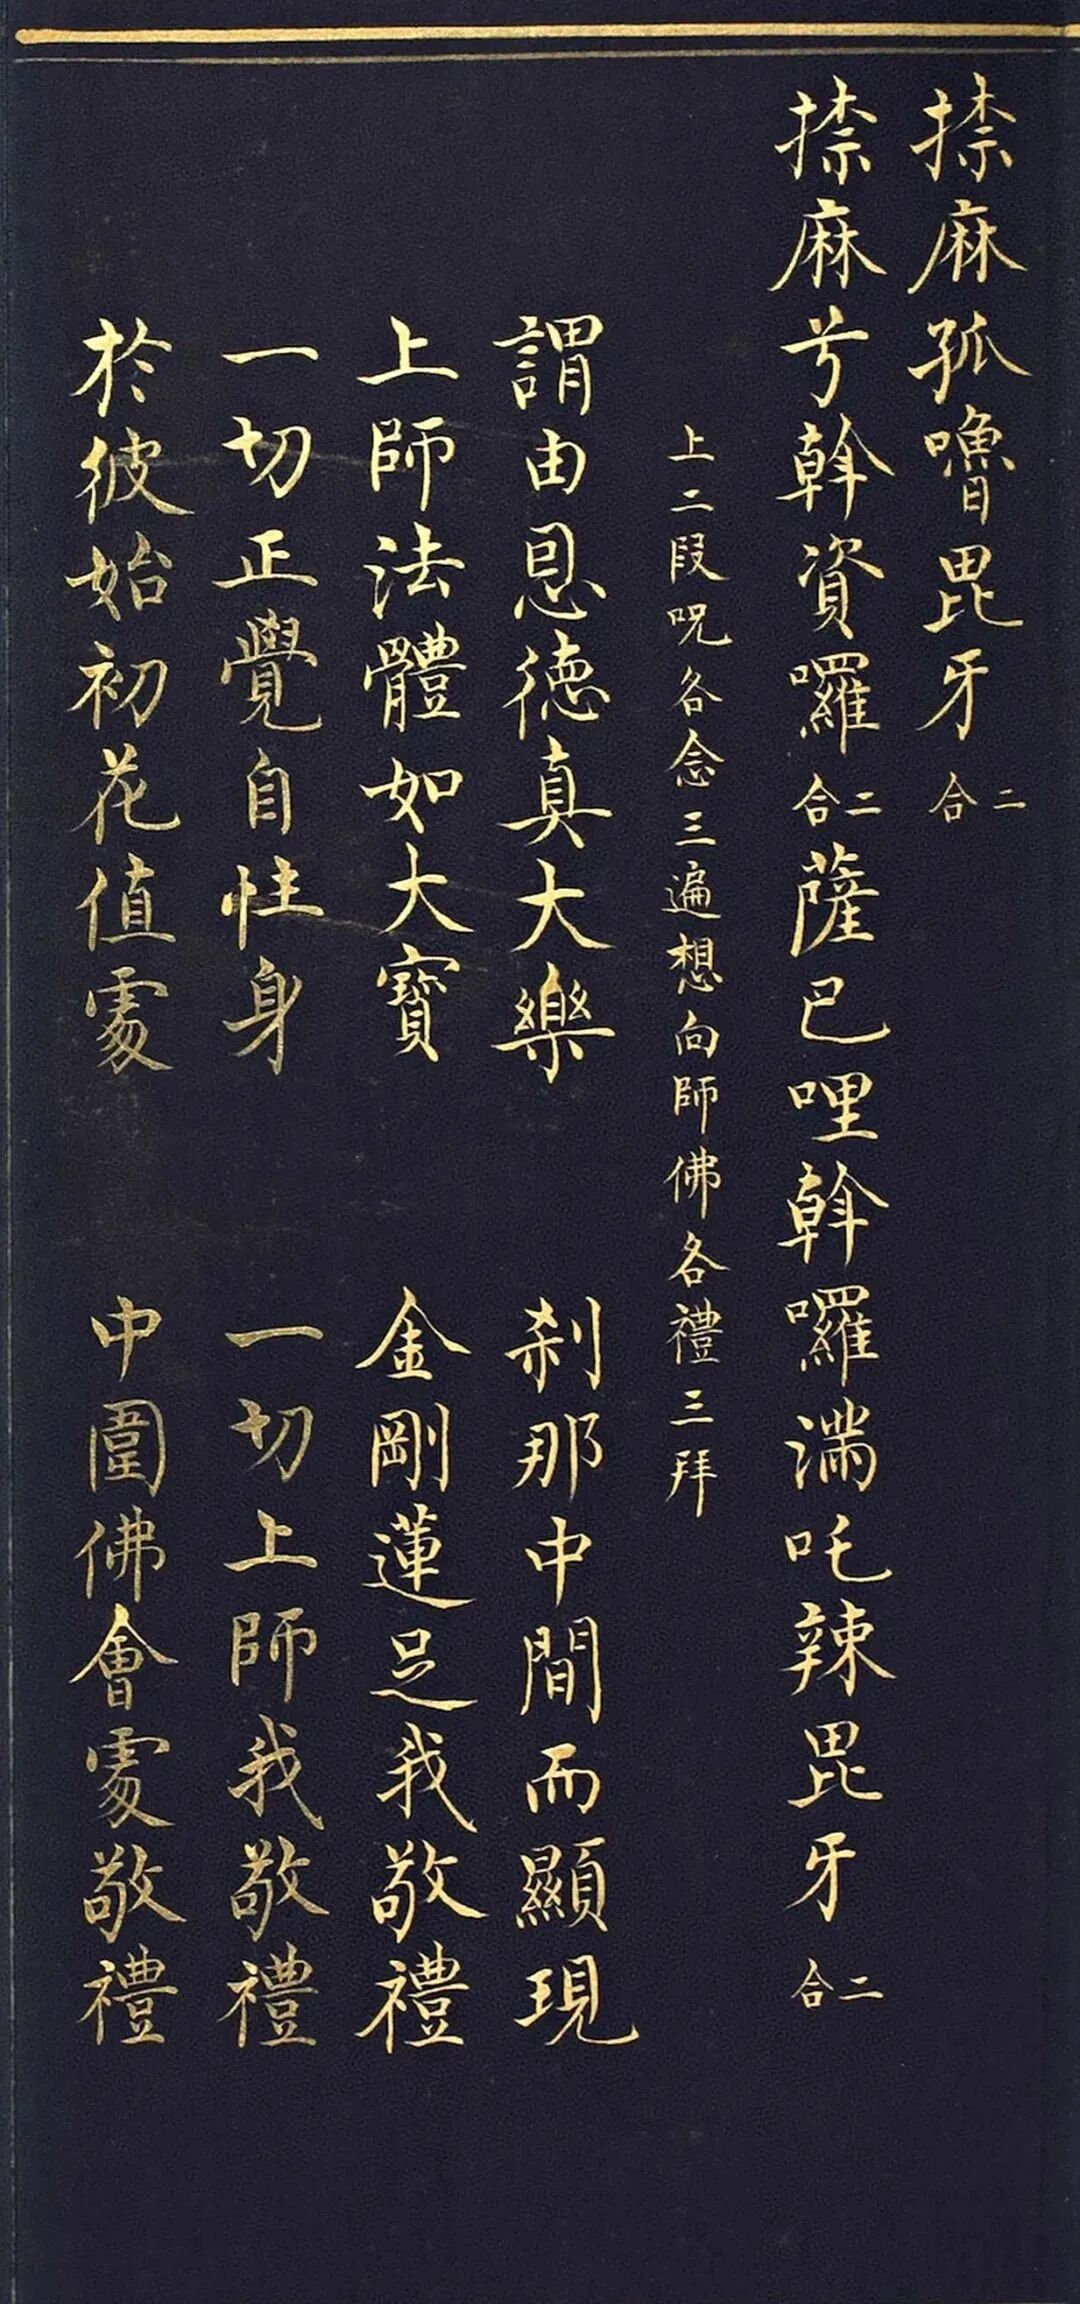 捺麻孤嚕毘牙二合
捺麻兮斡資囉二合薩巴哩斡囉滿吒辣毘牙二合
上二段呪各念三遍想向師佛各禮三拜
謂由恩德真大樂　剎那中間而顯現
上師法體如大寶　金剛蓮足我敬禮
一切正覺自性身　一切上師我敬禮
於彼始初花值處　中圍佛會處敬禮